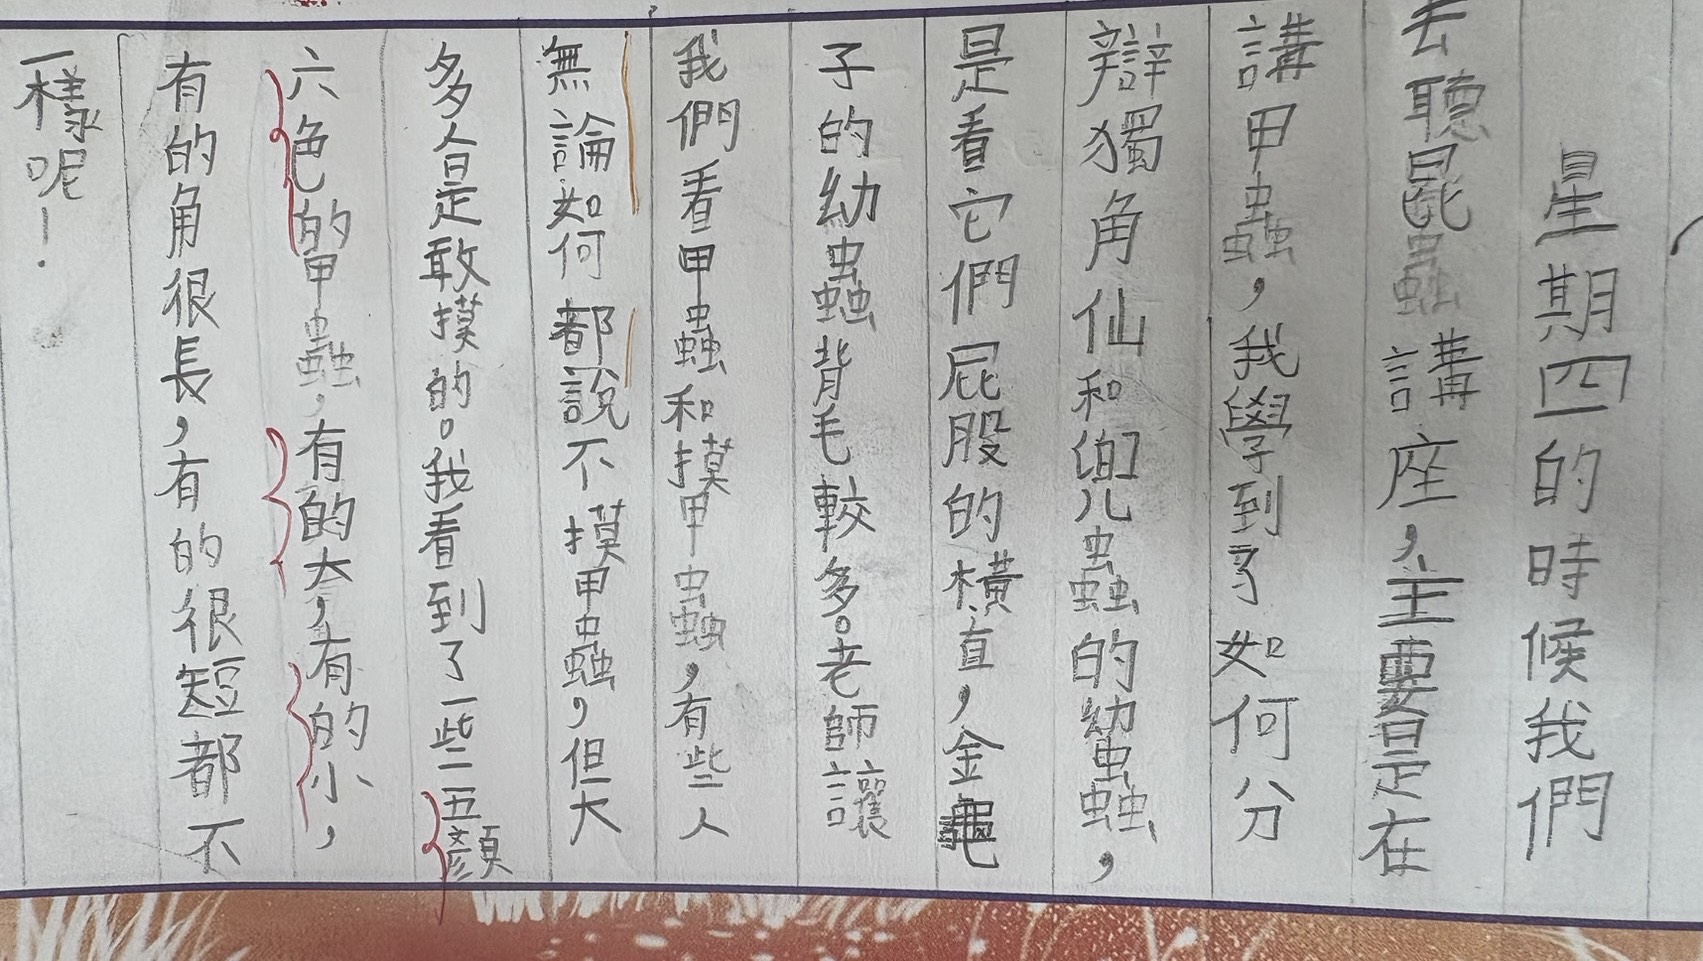 星期四的時候我們
去聽昆蟲講座，主要是在
講甲蟲，我學到了如何分
辯獨角仙和兜蟲的幼蟲，
是看它們屁股的橫直，金龜
子的幼蟲背毛較多。老師讓
我們看甲蟲和摸甲蟲，有些人
無論如何都說不摸甲蟲，但大
多人是敢摸的。我看到了一些五顏
六色的甲蟲，有的大，有的小，
有的角很長，有的很短都不
一樣呢！